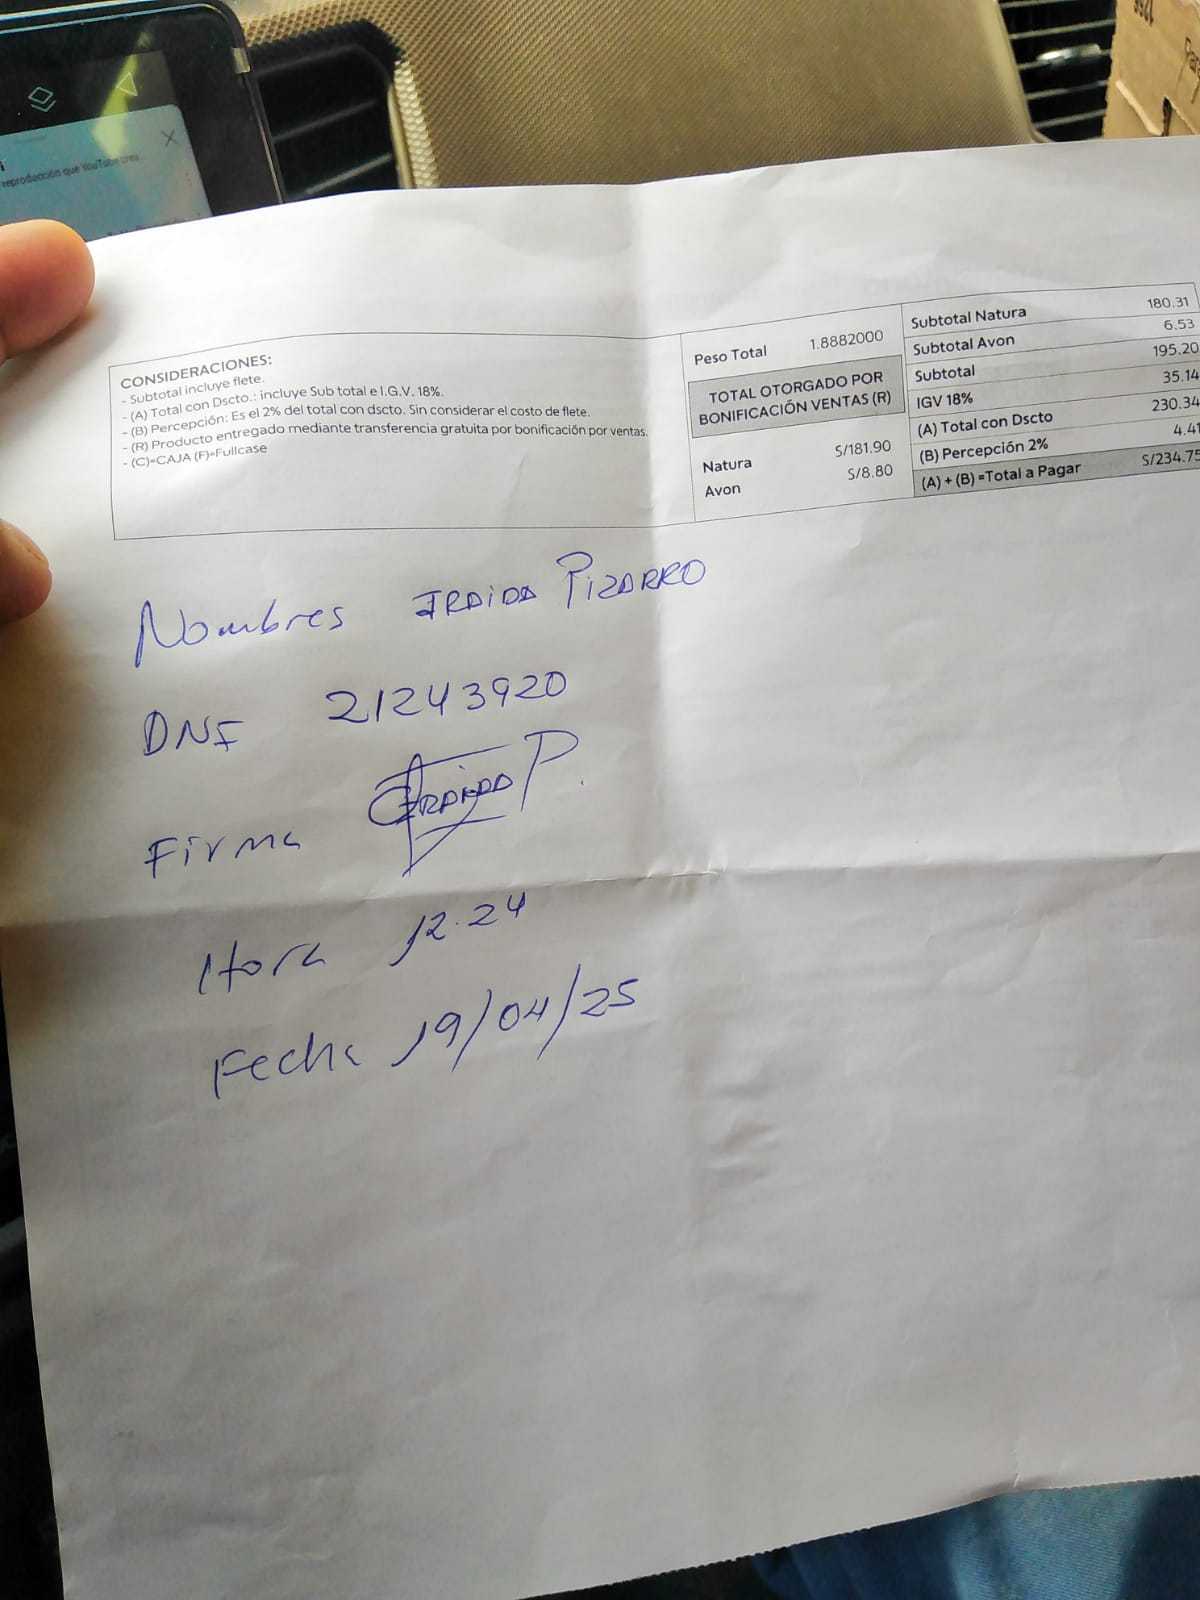 reproducción que YouTube crea
CONSIDERACIONES:
- Subtotal incluye flete.
- (A) Total con Dscto.: incluye Sub total e I.G.V. 18%.
- (B) Percepción: Es el 2% del total con dscto. Sin considerar el costo de flete.
- (R) Producto entregado mediante transferencia gratuita por bonificación por ventas.
- (C)=CAJA (F)=Fullcase
Peso Total 1.8882000
TOTAL OTORGADO POR
BONIFICACIÓN VENTAS (R)
Natura S/181.90
Avon S/8.80
Subtotal Natura 180.31
Subtotal Avon 6.53
Subtotal 195.20
IGV 18% 35.14
(A) Total con Dscto 230.34
(B) Percepción 2% 4.41
(A) + (B) =Total a Pagar S/234.75
Nombres IRAIDA PIZARRO
DNI 21243920
Firma IRAIDA P.
Hora 12.24
Fecha 19/04/25